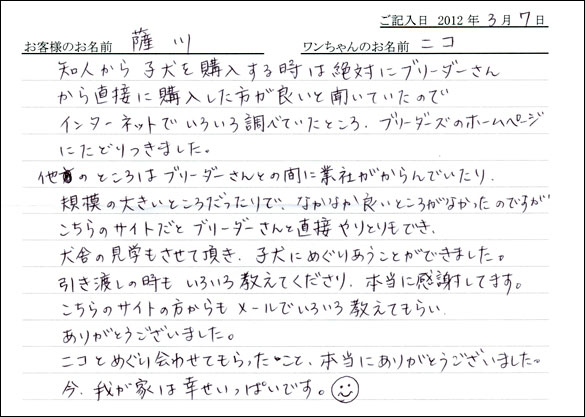 ご記入日 2012 年 3 月 7 日
お客様のお名前 薩川 ワンちゃんのお名前 ニコ
知人から子犬を購入する時は絶対にブリーダーさん
から直接に購入した方が良いと聞いていたので
インターネットでいろいろ調べていたところ、ブリーダーズのホームページ
にたどりつきました。
他のところはブリーダーさんとの間に業社がからんでいたり、
規模の大きいところだったりで、なかなか良いところがなかったのですが
こちらのサイトだとブリーダーさんと直接やりとりもでき、
犬舎の見学もさせて頂き、子犬にめぐりあうことができました。
引き渡しの時もいろいろ教えてくださり、本当に感謝してます。
こちらのサイトの方からもメールでいろいろ教えてもらい、
ありがとうございました。
ニコとめぐり会わせてもらったこと、本当にありがとうございました。
今、我が家は幸せいっぱいです。